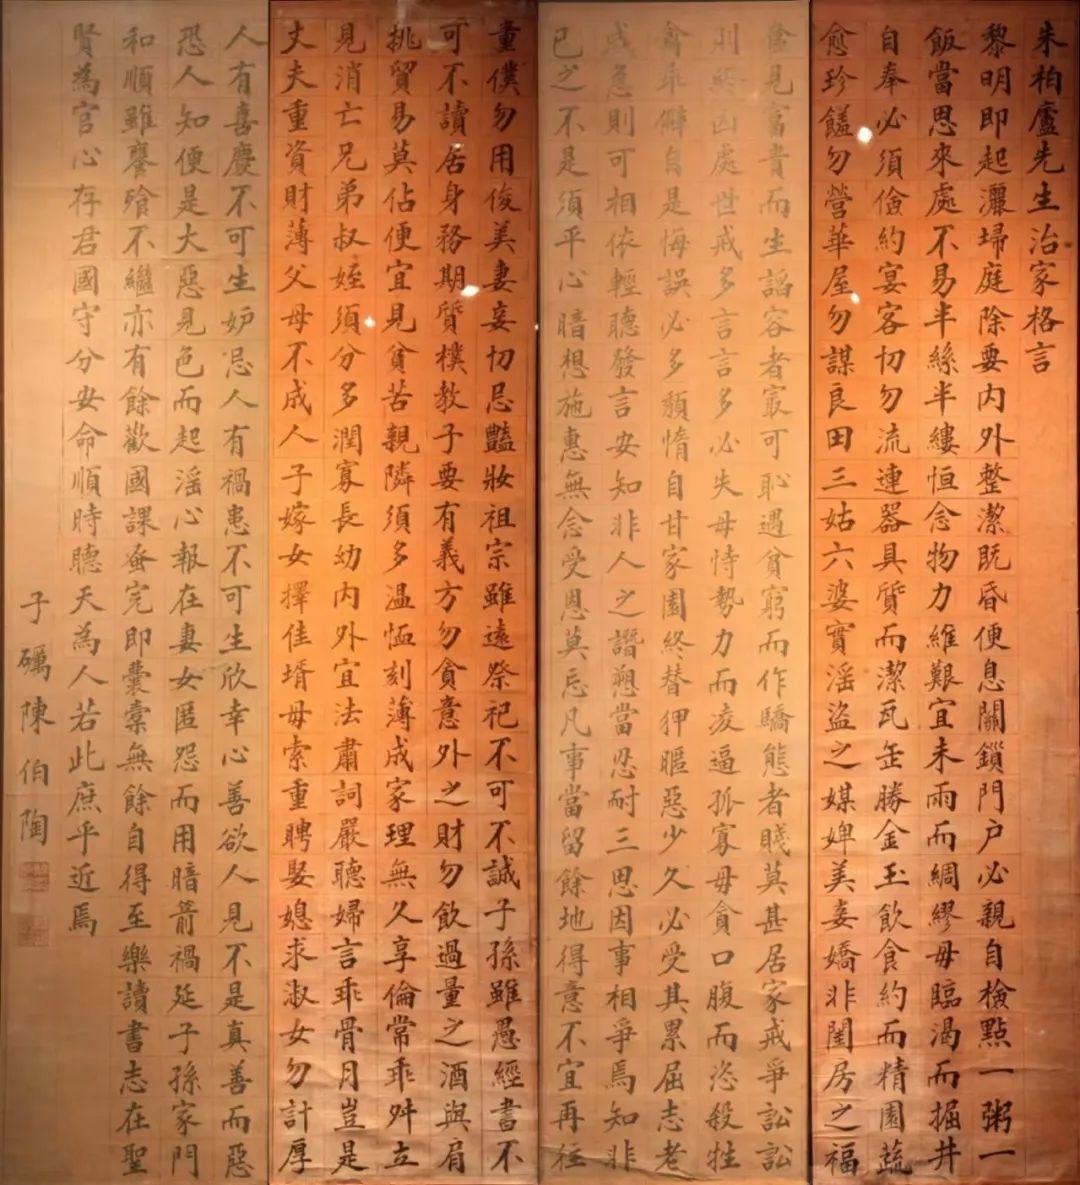 朱柏廬先生治家格言
黎明即起灑埽庭除要内外整潔既昏便息關鎖門户必親自檢點一粥一
飯當思來處不易半絲半縷恒念物力維艱宜未雨而綢繆毋臨渴而掘井
自奉必須儉約宴客切勿流連器具質而潔瓦缶勝金玉飲食約而精園蔬
愈珍饈勿營華屋勿謀良田三姑六婆實淫盜之媒婢美妾嬌非閨房之福
奩見富貴而生諂容者冣可恥遇貧窮而作驕態者賤莫甚居家戒爭訟訟
則終凶處世戒多言言多必失毋恃勢力而凌逼孤寡毋貪口腹而恣殺牲
禽乖僻自是悔誤必多頹惰自甘家園終替狎暱惡少久必受其累屈志老
成急則可相依輕聽發言安知非人之譖愬當忍耐三思因事相爭焉知非
已之不是須平心暗想施惠無念受恩莫忘凡事當留餘地得意不宜再往
童僕勿用俊美妻妾切忌豔妝祖宗雖遠祭祀不可不誠子孫雖愚經書不
可不讀居身務期質樸教子要有義方勿貪意外之財勿飲過量之酒與肩
挑貿易莫佔便宜見貧苦親隣須多温恤刻薄成家理無久享倫常乖舛立
見消亡兄弟叔姪須分多潤寡長幼内外宜法肅詞嚴聽婦言乖骨月豈是
丈夫重資財薄父母不成人子嫁女擇佳壻毋索重聘娶媳求淑女勿計厚
人有喜慶不可生妒忌人有禍患不可生欣幸心善欲人見不是真善而惡
恐人知便是大惡見色而起淫心報在妻女匿怨而用暗箭禍延子孫家門
和順雖饔飧不繼亦有餘歡國課蚤完即囊橐無餘自得至樂讀書志在聖
賢為官心存君國守分安命順時聽天為人若此庶乎近焉
子礪陳伯陶